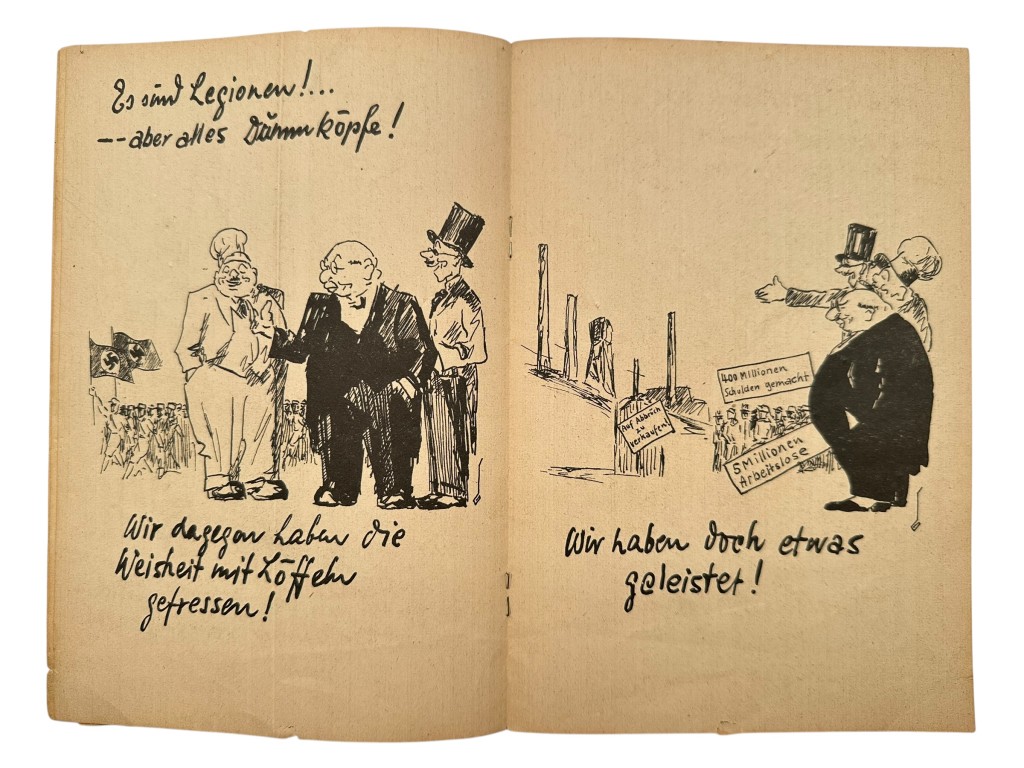 Es sind Legionen!...
-- aber alles Dummköpfe!
Wir dagegen haben die
Weisheit mit Löffeln
gefressen!
400 Millionen
Schulden gemacht
Auf Abbruch
zu
verkaufen!
5 Millionen
Arbeitslose
Wir haben doch etwas
geleistet!